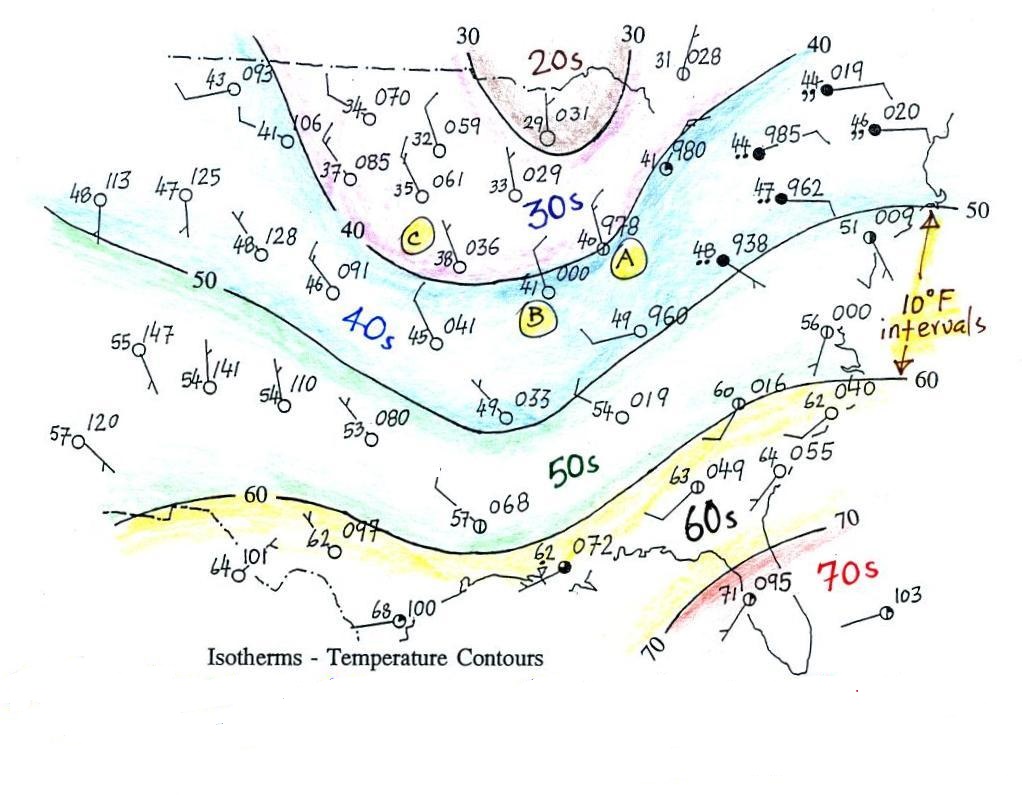 30
30
40
20s
31 028
43 093
34 070
44 019
,,
29 031
41 106
32 059
46 020
,,
37 085
35 061
33 029
41 980
44 985
48 113
47 125
30s
47 962
50
40
C
38 036
40 978
A
51 009
48 128
46 091
41 000
B
48 938
50
40s
45 041
49 960
56 000
10°F
intervals
55 147
54 141
54 110
49 033
54 019
60 016
62 040
60
57 120
53 080
50s
63 049
64 055
60
57 068
60s
70
62 097
62 072
64 101
70s
71 095
68 100
103
70
Isotherms - Temperature Contours